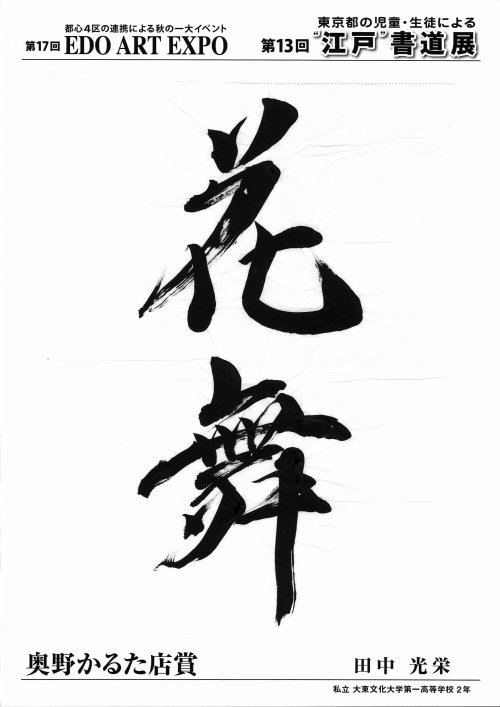 都心4区の連携による秋の一大イベント
第17回 EDO ART EXPO
東京都の児童・生徒による
第13回 “江戸”書道展
花
舞
奥野かるた店賞
田中 光栄
私立 大東文化大学第一高等学校 2年